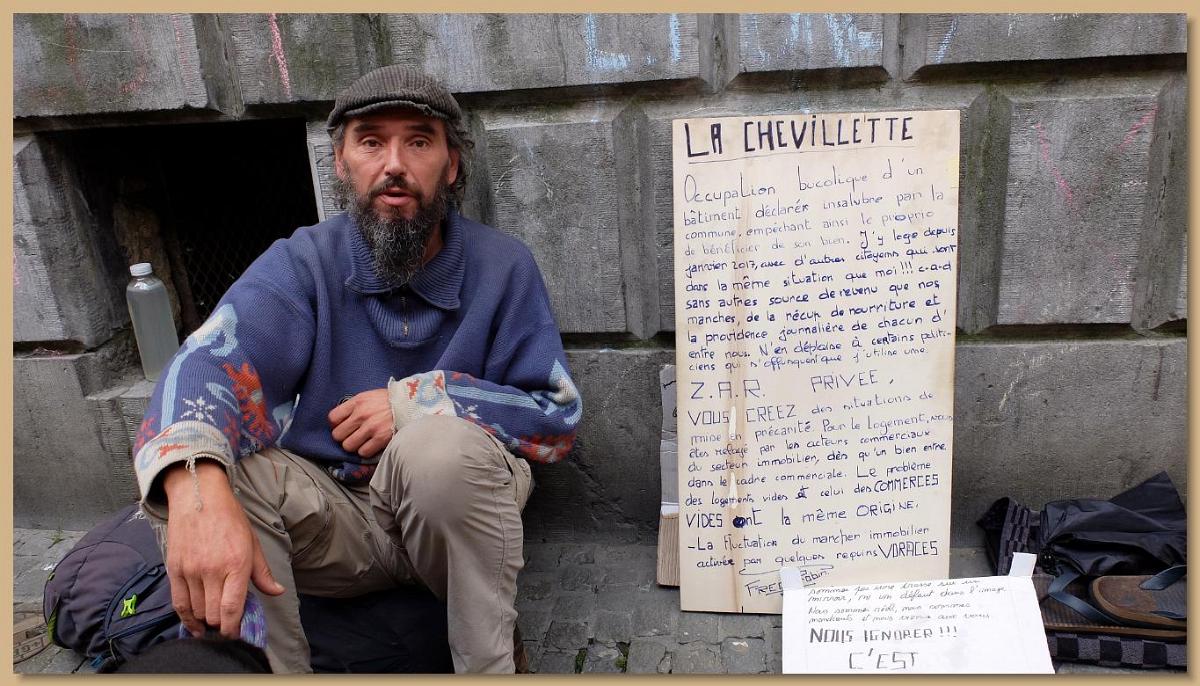 LA CHEVILLETTE
Occupation bucolique d'un
bâtiment déclarée insalubre par la
commune, empêchant ainsi le proprio
de bénéficier de son bien. J'y loge depuis
janvier 2017, avec d'autres citoyens qui sont
dans la même situation que moi!!! c-a-d
sans autres source de revenu que nos
manches, de la récup de nourriture et
la providence journalière de chacun d'
entre nous. N'en déplaise à certains politi-
ciens qui s'offusquent que j'utilise une.
Z.A.R. PRIVEE.
VOUS CREEZ des situations de
mise en précarité. Pour le logement, nous
êtes refusé par les acteurs commerciaux
du secteur immobilier, dès qu'un bien entre
dans le cadre commerciale. Le problème
des logements vides et celui des COMMERCES
VIDES ont la même ORIGINE.
-La fluctuation du marcher immobilier
activée par quelques requins VORACES
FREE Robin.
sommes pas une trasse sur un
mirroir, ni un défaut dans l'image.
Nous sommes réel, nous
et nous
NOUS IGNORER!!!
C'EST